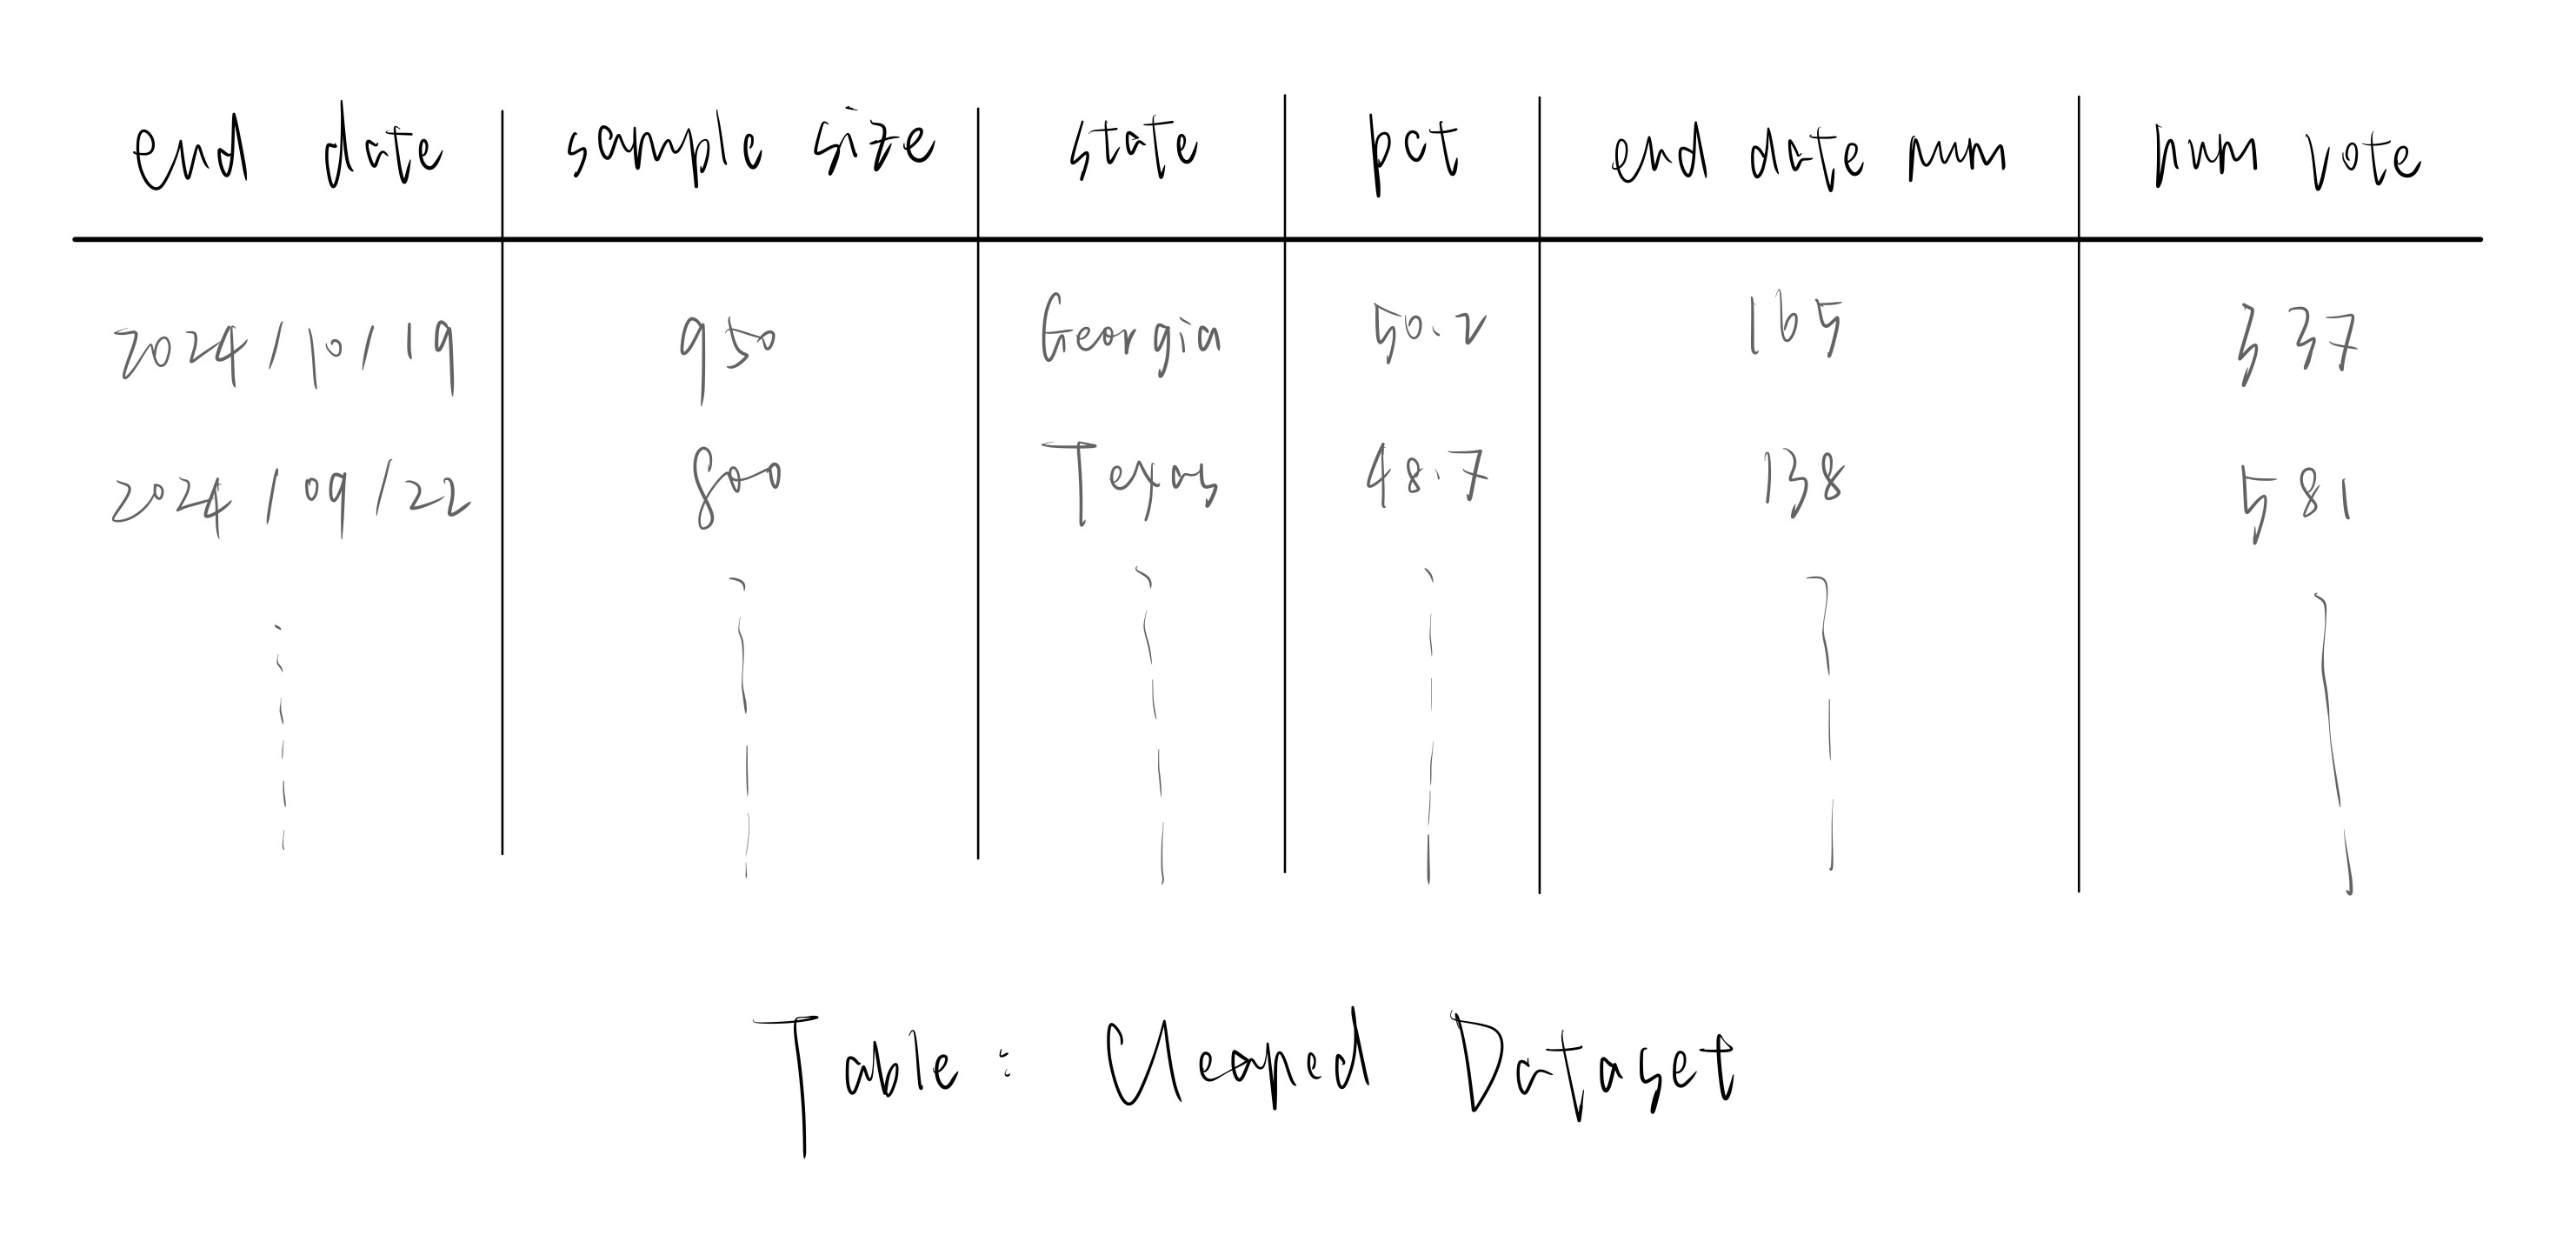 end date sample size state pct end date num num vote
2024/10/19 950 Georgia 50.2 165 337
2024/09/22 800 Texas 48.7 138 581
Table: Cleaned Dataset